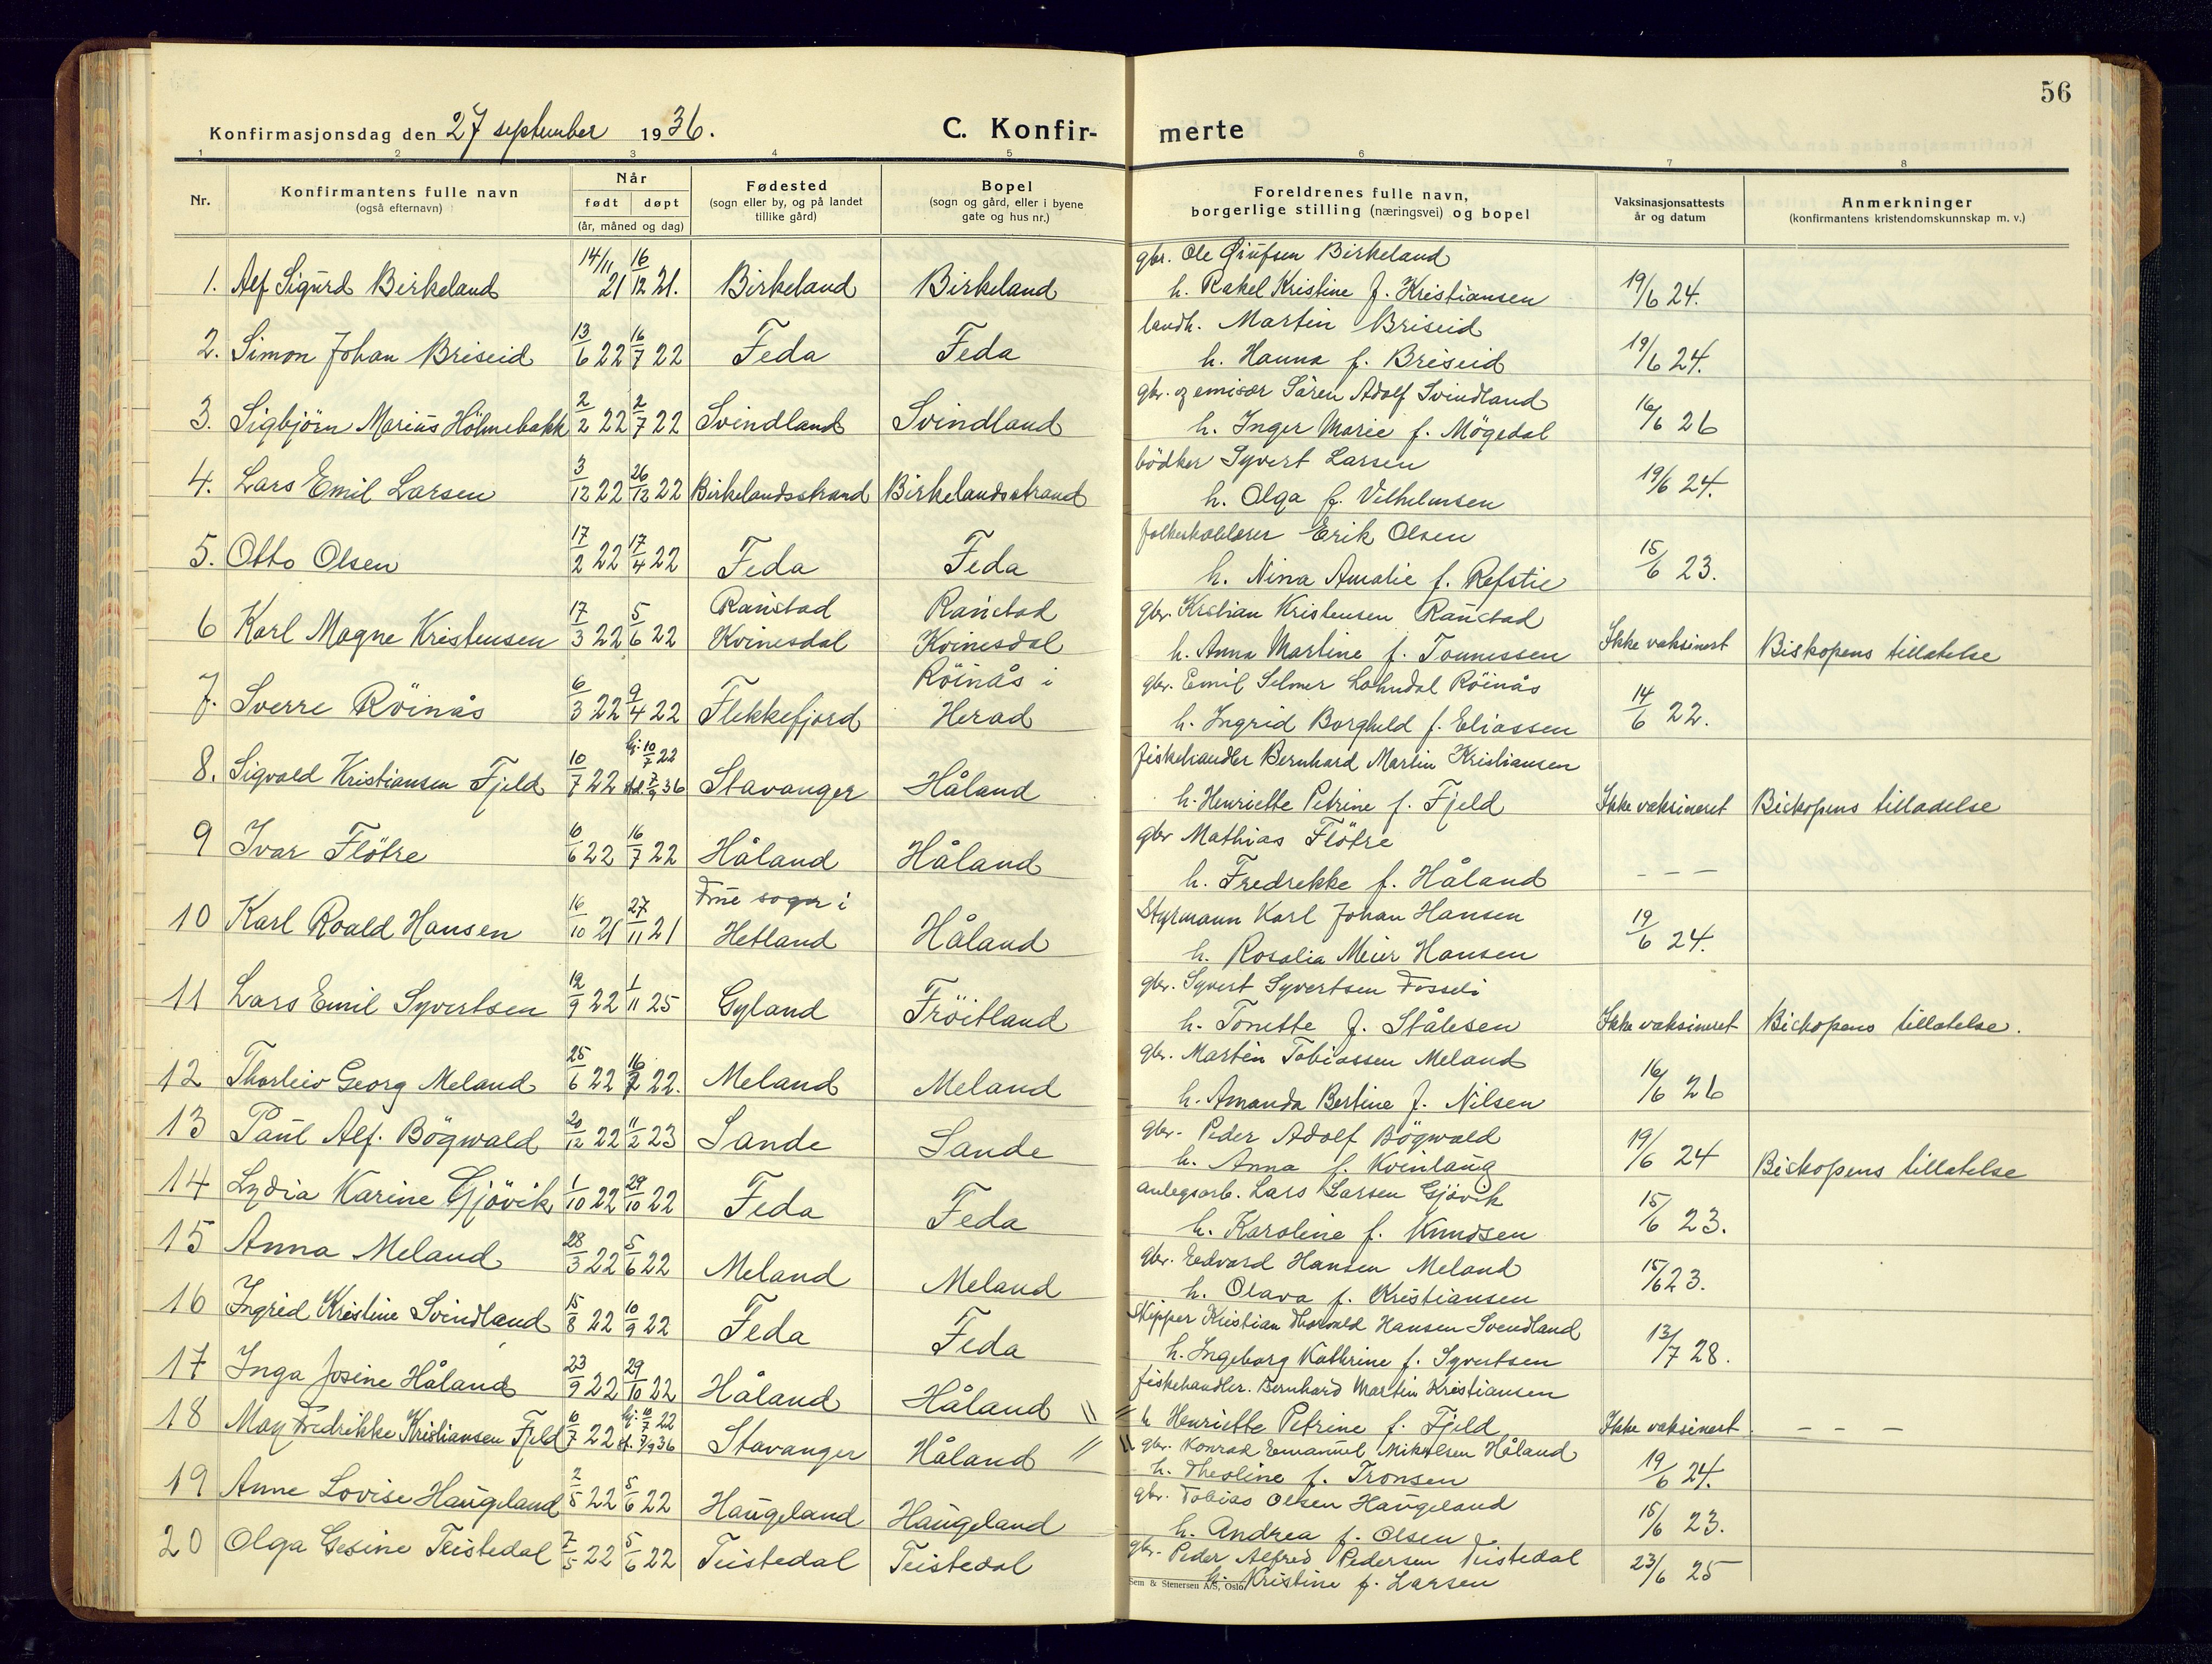 56
Konfirmasjonsdag den 27 september 1936.
C. Konfir-
merte
1 2 3 4 5 6 7 8
Nr.
Konfirmantens fulle navn
(også efternavn)
Når
født døpt
(år, måned og dag)
Fødested
(sogn eller by, og på landet
tillike gård)
Bopel
(sogn og gård, eller i byene
gate og hus nr.)
Foreldrenes fulle navn,
borgerlige stilling (næringsvei) og bopel
Vaksinasjonsattests
år og datum
Anmerkninger
(konfirmantens kristendomskunnskap m. v.)
gbr. Ole Birkeland
1. Alf Sigurd Birkeland 14/11 21 16/12 21. Birkeland Birkeland h. Rakel Kristine f. Kristiansen 19/6 24.
landh. Martin Briseid
2. Simon Johan Briseid 13/6 22 16/7 22 Feda Feda h. Hanna f. Briseid 19/6 24.
gbr. og emisær Sören Adolf Svindland
3. Sigbjörn Marius Hölmebakk 2/2 22 2/7 22 Svindland Svindland h. Inger Marie f. Mögedal 16/6 26
bödker Syvert Larsen
4. Lars Emil Larsen 3/12 22 26/12 22 Birkelandsstrand Birkelandsstrand h. Olga f. Vilhelmsen 19/6 24.
folkeskolelærer Erik Olsen
5. Otto Olsen 17/2 22 17/4 22 Feda Feda h. Nina Amalie f. Refstie 15/6 23.
Raustad Raustad gbr. Kristian Kristensen Raustad
6 Karl Magne Kristensen 17/3 22 5/6 22 Kvinesdal Kvinesdal h. Anna Martine f. Tönnessen Ikke vaksinert Biskopens tillatelse
Röinås i gbr. Emil Selmer Lohndal Röinås
7. Sverre Röinås 6/3 22 9/4 22 Flekkefjord Herad h. Ingrid Borghild f. Eliassen 14/6 22.
hj: 10/7 22 fiskehandler Bernhard Martin Kristiansen
8. Sigvald Kristiansen Fjeld 10/7 22 st. 7/9 36 Stavanger Håland h. Henriette Petrine f. Fjeld Ikke vaksineret Biskopens tilladelse
gbr Mathias Flötre
9 Ivar Flötre 10/6 22 16/7 22 Håland Håland h. Fredrekke f. Håland - - -
Frue sogn i Styrmann Karl Johan Hansen
10 Karl Roald Hansen 16/10 21 27/11 21 Hetland Håland h. Rosalia Meier Hansen 19/6 24.
gbr. Syvert Syvertsen Fosseli
11 Lars Emil Syvertsen 12/9 22 1/11 25 Gyland Fröitland h. Tonette f. Stålesen Ikke vaksineret Biskopens tillatelse.
gbr. Martin Tobiassen Meland
12 Thorleiv Georg Meland 25/6 22 16/7 22. Meland Meland h. Amanda Bertine f. Nilsen 16/6 26
gbr. Peder Adolf Bögwald
13 Paul Alf. Bögwald 20/12 22 11/2 23 Sande Sande h. Anna f. Kvinlaug 19/6 24 Biskopens tillatelse
anlegsarb. Lars Larsen Gjövik
14 Lydia Karine Gjövik 1/10 22 29/10 22 Feda Feda h. Karoline f. Knudsen 15/6 23.
gbr. Eedvard Hansen Meland
15 Anna Meland 28/3 22 5/6 22 Meland Meland h. Olava f. Kristiansen 15/6 23.
Skipper Kristian Thorvald Hansen Svendland
16 Ingrid Kristine Svindland 15/8 22 10/9 22 Feda Feda h. Ingeborg Kathrine f. Syvertsen 13/7 28.
fiskehandler. Bernhard Martin Kristiansen
17 Inga Josine Håland 23/9 22 29/10 22 Håland Håland \\ h Henriette Petrine f. Fjeld Ikke vaksinert - - -
18 May Fredrikke Kristiansen Fjeld 10/7 22 hj: 10/7 22 st. 7/9 36 Stavanger Håland // gbr. Konrad Emanuel Mikalsen Håland
h. Theoline f. Tronsen 19/6 24.
gbr. Tobias Olsen Haugeland
19 Anne Lovise Haugeland 2/5 22 5/6 22 Haugeland Haugeland h. Andrea f. Olsen 15/6 23.
gbr. Peder Alfred Pedersen Teistedal
20 Olga Gesine Teistedal 7/5 22 5/6 22 Teistedal Teistedal h. Kristine f. Larsen 23/6 25
Sem & Stenersen A/S, Oslo